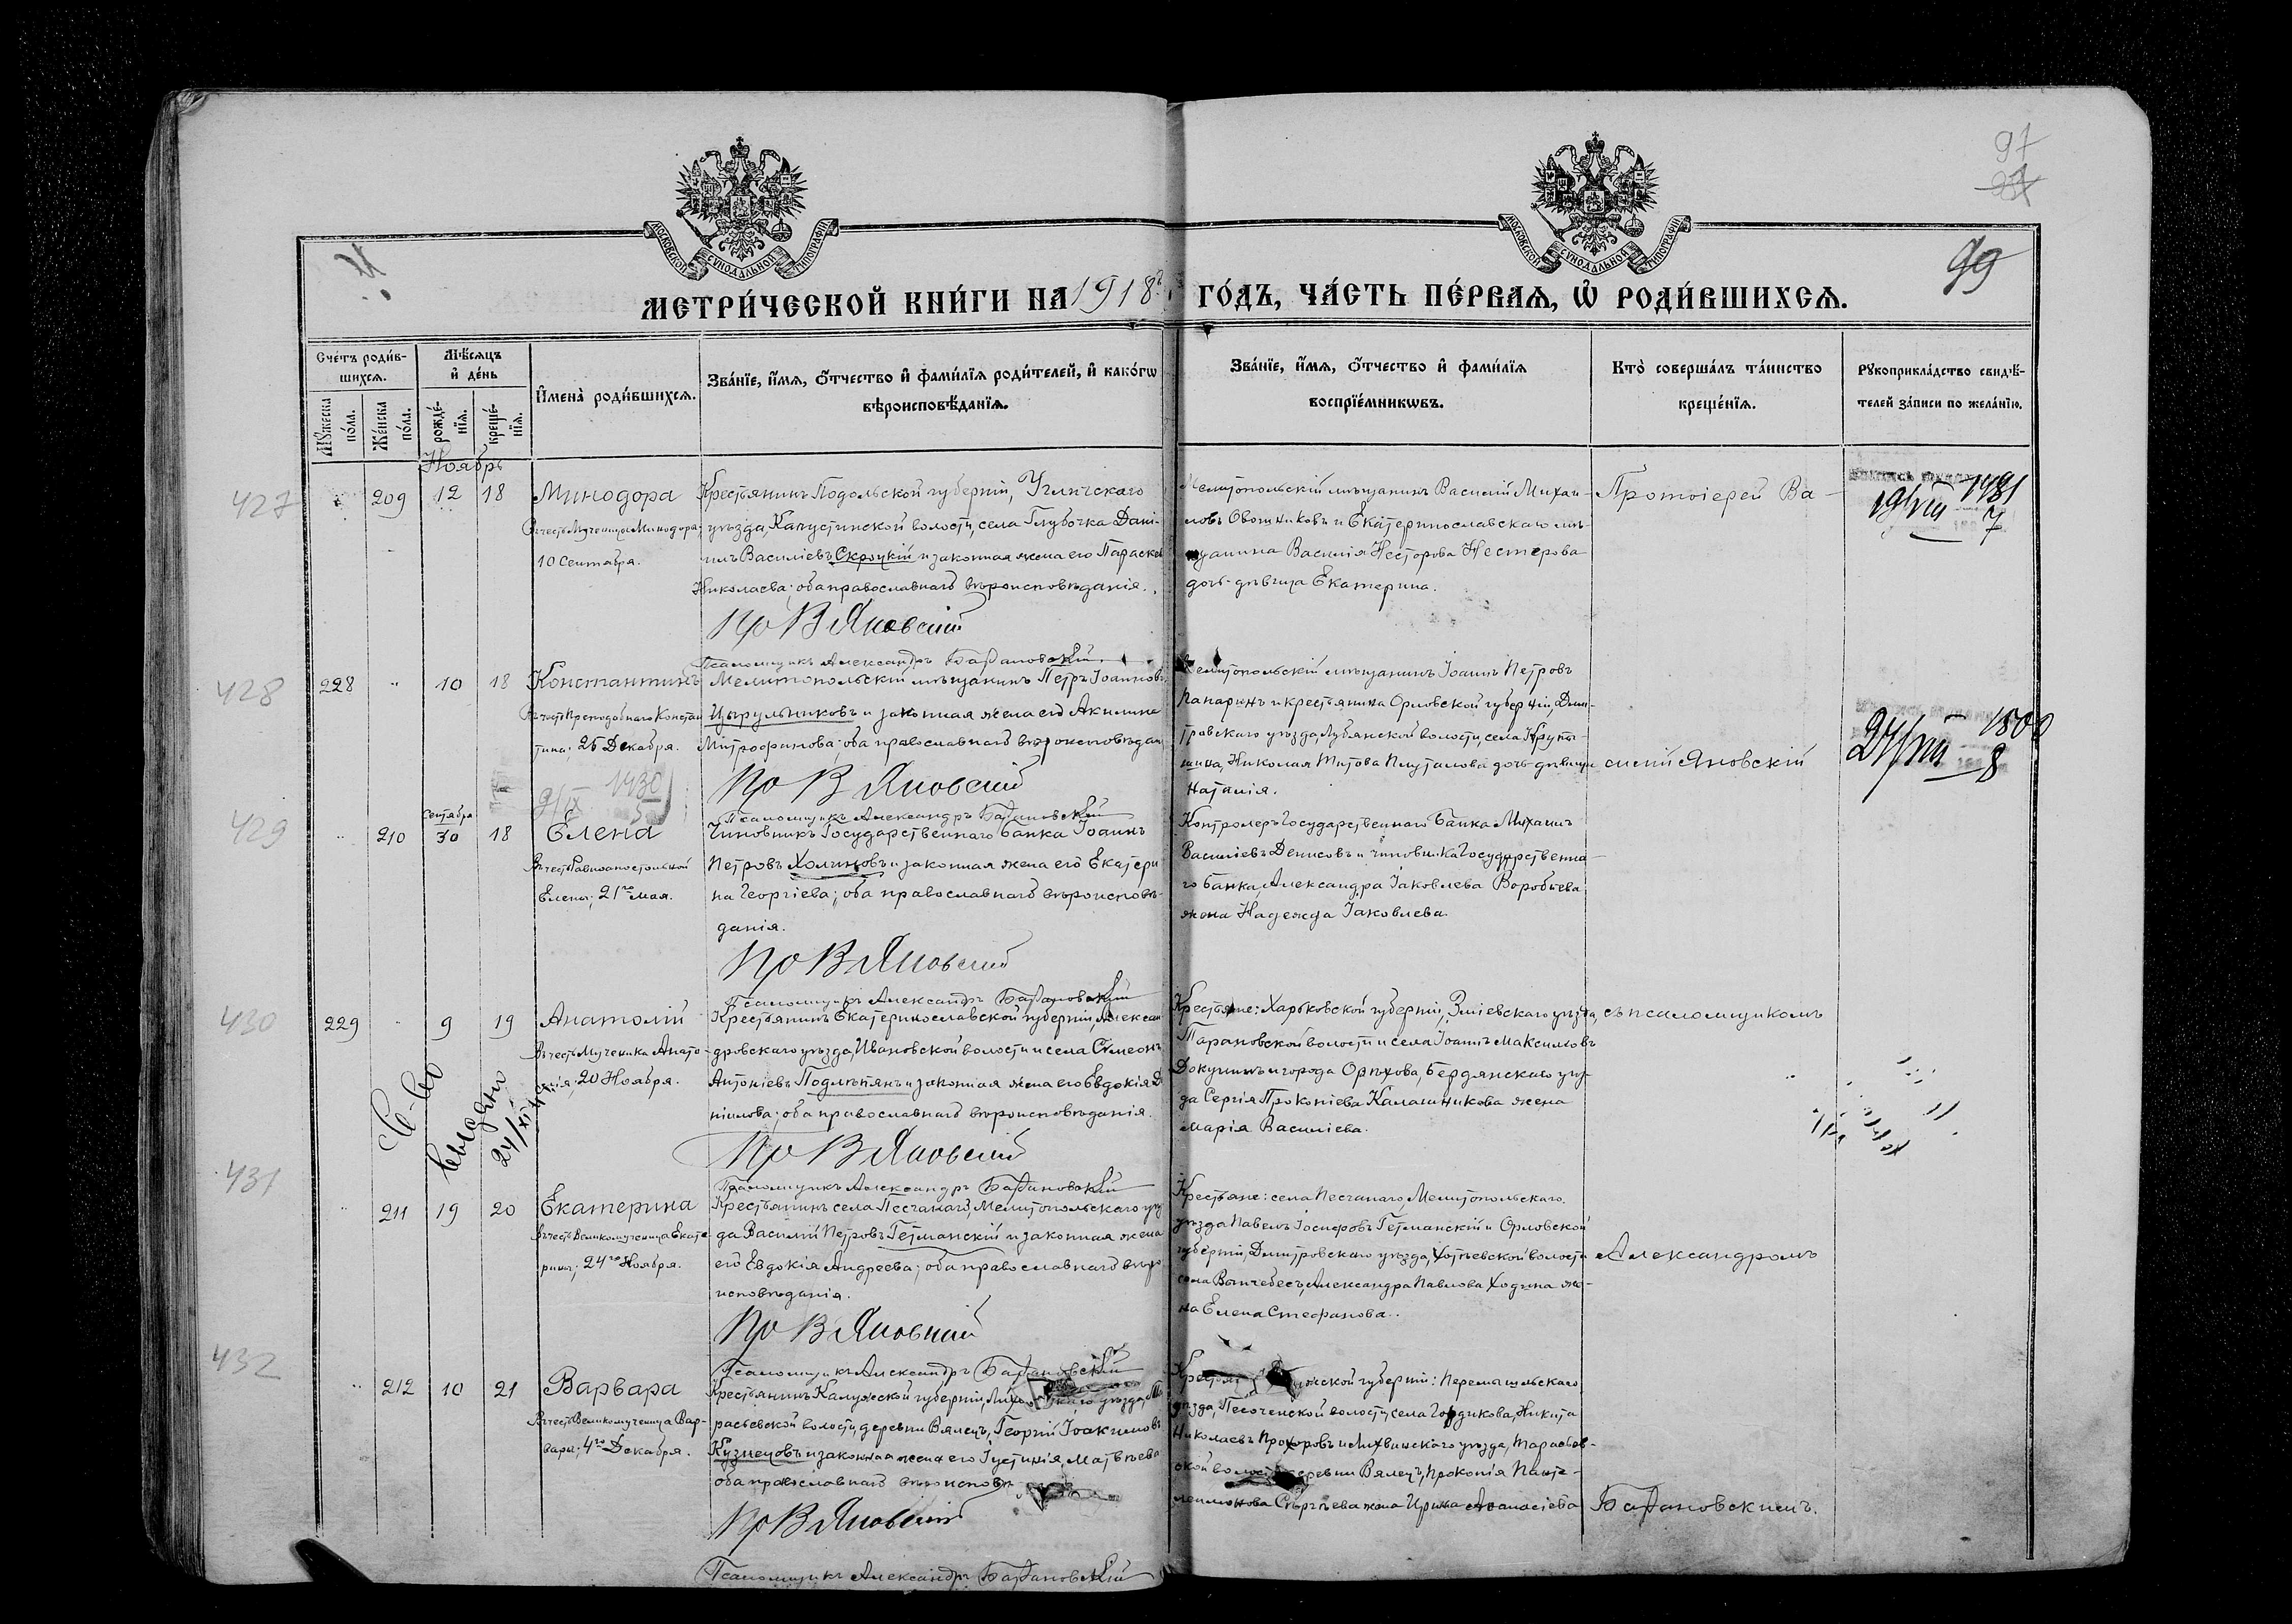 97
99
МОСКОВСКОЙ СУНОДАЛЬНОЙ ТИПОГРАФІИ
МОСКОВСКОЙ СУНОДАЛЬНОЙ ТИПОГРАФІИ
МЕТРИ́ЧЕСКОЙ КНИ́ГИ НА 1918 г. ГО́ДЪ, ЧА́СТЬ ПЕ́РВАЯ, Ѽ РОДИ́ВШИХСЯ.
Сче́тъ роди́в-
шихся.
Мѣ́сяцъ
и҆ де́нь
Му́жеска по́ла.
Же́нска по́ла.
рожде́-
нїя.
креще́-
нїя.
И҆мена̀ роди́вшихся.
Зва́нїе, и҆́мя, ѻ҆́тчество и҆ фами́лїя роди́телей, и҆ како́гѡ
вѣроисповѣ́данїя.
Зва́нїе, и҆́мя, ѻ҆́тчество и҆ фами́лїя
воспрїе́мникѡвъ.
Кто̀ соверша́лъ та́инство
креще́нїя.
Рꙋкоприкла́дство свидѣ́-
телей за́писи по жела́нїю.
Ноябрь
427
209 12 18 Минодора
Въ честь Мученицы Минодоры;
10 Сентября.
Крестьянинъ Подольской губерніи,
уѣзда, Капустинской волости, села Глубочка Дані-
илъ Василіевъ Скроцкій и законная жена его Параскева
Николаева; оба православнаго вѣроисповѣданія.
Пр В Яновскій
Псаломщикъ Александръ
Мелитопольскій мѣщанинъ Василій Михаи-
ловъ Овошниковъ и Екатеринославскаго мѣ-
щанина Василія Несторова Нестерова
дочь-дѣвица Екатерина.
Протоіерей Ва-
19/VIII 1491
7
428
228 " 10 18 Константинъ
Въ честь Преподобнаго Констан
тина; 26 Декабря.
Мелитопольскій мѣщанинъ Петръ Іоанновъ
Цырульниковъ и законная жена его Акилина
Митрофанова; оба православнаго вѣроисповѣдан
Пр В Яновскій
Псаломщикъ Александръ
Мелитопольскій мѣщанинъ Іоаннъ Петровъ
Папаринъ и крестьянина Орловской губерніи, Дми-
тровскаго уѣзда, Лубянской волости, села Крупы-
шина, Николая Титова дочь-дѣвица
Наталія.
силій Яновскій
24/VIII 1500
8
9/IX 1430
5
429
" 210 Сентября 30 18 Елена
Въ честь Равноапостольной
Елены; 21го мая.
Чиновникъ Государственнаго Банка Іоаннъ
Петровъ Холиновъ и законная жена его Екатери
на Георгіева; оба православнаго вѣроисповѣ-
данія.
Пр В Яновскій
Псаломщикъ Александръ
Контролеръ Государственнаго Банка Михаилъ
Василіевъ Денисовъ и чиновника Государственна-
го Банка Александра Іаковлева Воробьева
жена Надежда Іаковлева.
430
229 " 9 19 Анатолій
Въ честь Мученика Анато-
лія; 20 Ноября.
Св-во
выдано
24/XI
Крестьянинъ Екатеринославской губерніи, Алексан
дровскаго уѣзда, Ивановской волости и села Симеонъ
Антоніевъ и законная жена его Евдокія Да
ніилова; оба православнаго вѣроисповѣданія.
Пр В Яновскій
Псаломщикъ Александръ
Крестьяне: Харьковской губерніи, Зміевскаго уѣзда,
Тарановской волости и села Іоаннъ Максимовъ
Докучинъ и города Орѣхова, Бердянскаго уѣз-
да Сергія Прокопіева Калашникова жена
Марія Василіева.
съ псаломщикомъ
431
" 211 19 20 Екатерина
Въ честь Великомученицы Екате
рины; 24го Ноября.
Крестьянинъ села Песчанаго, Мелитопольскаго уѣз
да Василій Петровъ Гетманскій и законная жена
его Евдокія Андреева; оба православнаго вѣро
исповѣданія.
Пр В Яновскій
Псаломщикъ Александръ
Крестьяне: села Песчанаго, Мелитопольскаго
уѣзда Павелъ Іосифовъ Гетманскій и Орловской
губерніи, Дмитровскаго уѣзда, волости
села Александра Павлова Ходина же-
на Елена Стефанова.
Александромъ
432
" 212 10 21 Варвара
Въ честь Великомученицы Вар-
вары; 4го Декабря.
Крестьянинъ Калужской губерніи, уѣзда, Та
расьевской волости, деревни Вялецъ, Георгій Іоакимовъ
Кузнецовъ и законная жена его Іустинія Матвѣева
оба православнаго вѣроисповѣ
Пр В Яновскій
Псаломщикъ Александръ
губерніи: Перемышльскаго
уѣзда, Песоченской волости, села Гордикова, Никита
Николаевъ Прохоровъ и Лихвинскаго уѣзда, Тарасьев-
ской волости деревни Вялецъ, Прокопія Панте-
леимонова Сергѣева жена Ирина Аѳанасіева